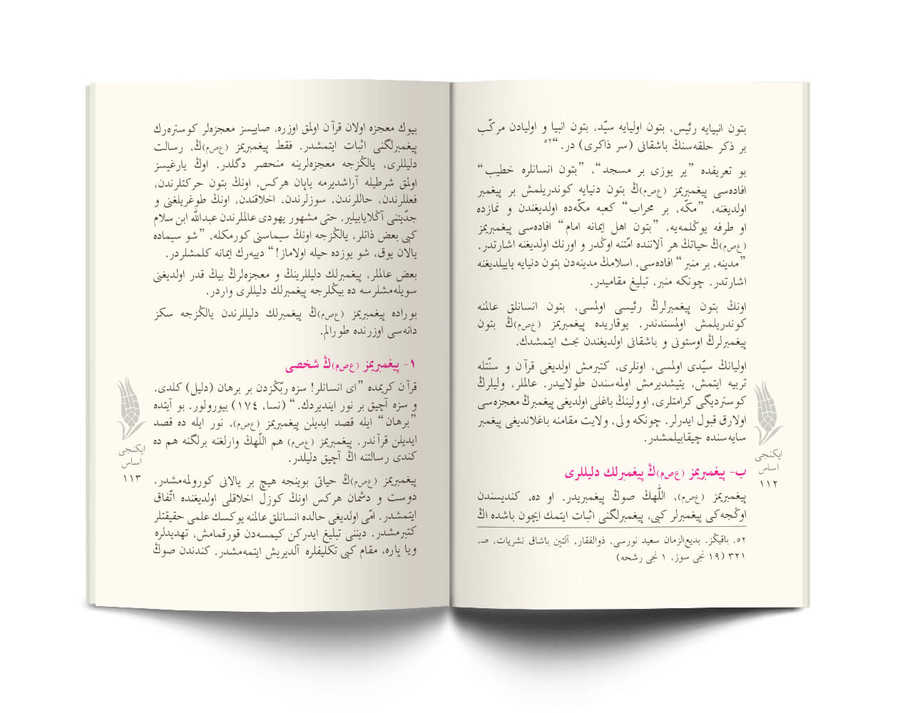 بتون انبيايه رئيس، بتون اوليايه سيّد، بتون انبيا و اوليادن مركّب
بر ذكر حلقه‌سنڭ باشقانى (سر ذاكرى) در. “٥٢
بو تعريفده ”ير يوزى بر مسجد“، ”بتون انسانلره خطيب“
افاده‌سى پيغمبريمز (ع‌ص‌م)ڭ بتون دنيايه كوندريلمش بر پيغمبر
اولديغنه، ”مكّه، بر محراب“ كعبه مكّه‌ده اولديغندن و نمازده
او طرفه يوڭلمه‌يه، ”بتون اهل ايمانه امام“ افاده‌سى پيغمبريمز
(ع‌ص‌م)ڭ حياتنڭ هر آلاننده امّتنه اوڭدر و اورنك اولديغنه اشارتدر.
”مدينه، بر منبر“ افاده‌سى، اسلامڭ مدينه‌دن بتون دنيايه ياييلديغنه
اشارتدر. چونكه منبر، تبليغ مقاميدر.
اونڭ بتون پيغمبرلرڭ رئيسى اولمسى، بتون انسانلق عالمنه
كوندريلمش اولمسندندر. يوقاريده پيغمبريمز (ع‌ص‌م)ڭ بتون
پيغمبرلرڭ اوستونى و باشقانى اولديغندن بحث ايتمشدك.
اوليانڭ سيّدى اولمسى، اونلرى، كتيرمش اولديغى قرآن و سنّتله
تربيه ايتمش، يتيشديرمش اولمه‌سندن طولاييدر. عالملر، وليلرڭ
كوسترديگى كرامتلرى، او ولينڭ باغلى اولديغى پيغمبرڭ معجزه‌سى
اولارق قبول ايدرلر. چونكه ولى، ولايت مقامنه باغلانديغى پيغمبر
سايه‌سنده چيقابيلمشدر.
ب- پيغمبريمز (ع‌ص‌م)ڭ پيغمبرلك دليللرى
پيغمبريمز (ع‌ص‌م)، اللّٰهڭ صوڭ پيغمبريدر. او ده، كنديسندن
اوڭجه‌كى پيغمبرلر كبى، پيغمبرلگنى اثبات ايتمك ايچون باشده اڭ
٥٢. باقيڭز. بديع‌الزمان سعيد نورسى، ذوالفقار، آلتين باشاق نشريات، ص.
٣٢١ (١٩ نجى سوز، ١ نجى رشحه)
ايكنجى
اساس
١١٢
بيوك معجزه اولان قرآن اولمق اوزره، صاييسز معجزه‌لر كوستره‌رك
پيغمبرلگنى اثبات ايتمشدر. فقط پيغمبريمز (ع‌ص‌م)ڭ، رسالت
دليللرى، يالڭزجه معجزه‌لرينه منحصر دگلدر. اوڭ يارغيسز
اولمق شرطيله آراشديرمه ياپان هركس، اونڭ بتون حركتلرندن،
فعللرندن، حاللرندن، سوزلرندن، اخلاقندن، اونڭ طوغريلغنى و
جدّيتنى آڭلايابيلير. حتى مشهور يهودى عالملرندن عبدالله ابن سلام
كبى بعض ذاتلر، يالڭزجه اونڭ سيماسنى كورمكله، ”شو سيماده
يالان يوق، شو يوزده حيله اولاماز!“ دييه‌رك ايمانه كلمشلردر.
بعض عالملر، پيغمبرلك دليللرينڭ و معجزه‌لرڭ بيڭ قدر اولديغنى
سويله‌مشلرسه ده بيڭلرجه پيغمبرلك دليللرى واردر.
بوراده پيغمبريمز (ع‌ص‌م)ڭ پيغمبرلك دليللرندن يالڭزجه سكز
دانه‌سى اوزرنده طورالم.
١- پيغمبريمز (ع‌ص‌م)ڭ شخصى
قرآن كريمده ”اى انسانلر! سزه ربّڭزدن بر برهان (دليل) كلدى.
و سزه آچيق بر نور اينديردك.“ (نسا، ١٧٤) بيورولور. بو آيتده
”برهان“ ايله قصد ايديلن پيغمبريمز (ع‌ص‌م)، نور ايله ده قصد
ايديلن قرآندر. پيغمبريمز (ع‌ص‌م) هم اللّٰهڭ وارلغنه برلگنه هم ده
كندى رسالتنه اڭ آچيق دليلدر.
پيغمبريمز (ع‌ص‌م)ڭ حياتى بوينجه هيچ بر يالانى كورولمه‌مشدر.
دوست و دشمان هركس اونڭ كوزل اخلاقلى اولديغنده اتّفاق
ايتمشدر. امّى اولديغى حالده انسانلق عالمنه يوكسك علمى حقيقتلر
كتيرمشدر. ديننى تبليغ ايدركن كيمسه‌دن قورقمامش، تهديدلره
ويا پاره، مقام كبى تكليفلره آلديريش ايتمه‌مشدر. كندندن صوڭ
ايكنجى
اساس
١١٣